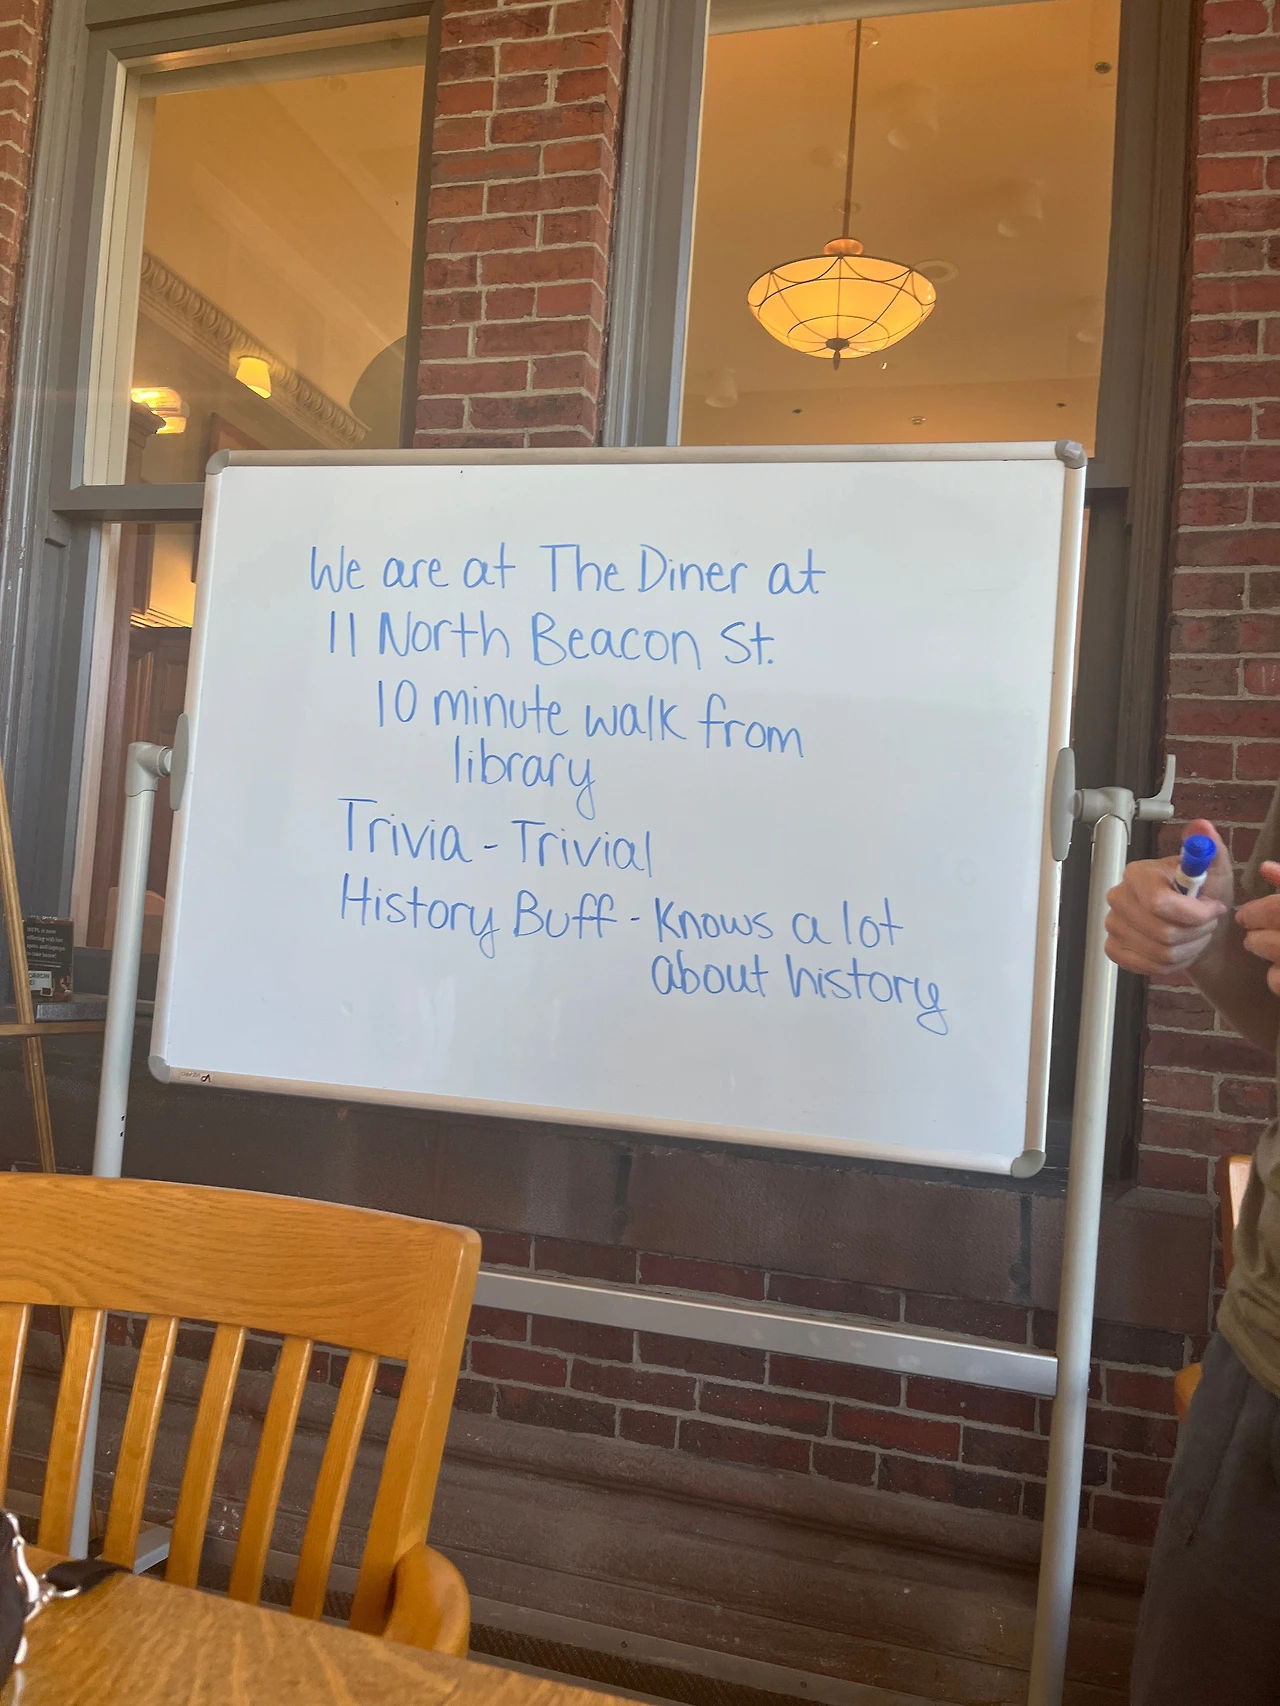 We are at The Diner at
11 North Beacon St.
10 minute walk from
library
Trivia - Trivial
History Buff - Knows a lot
about history